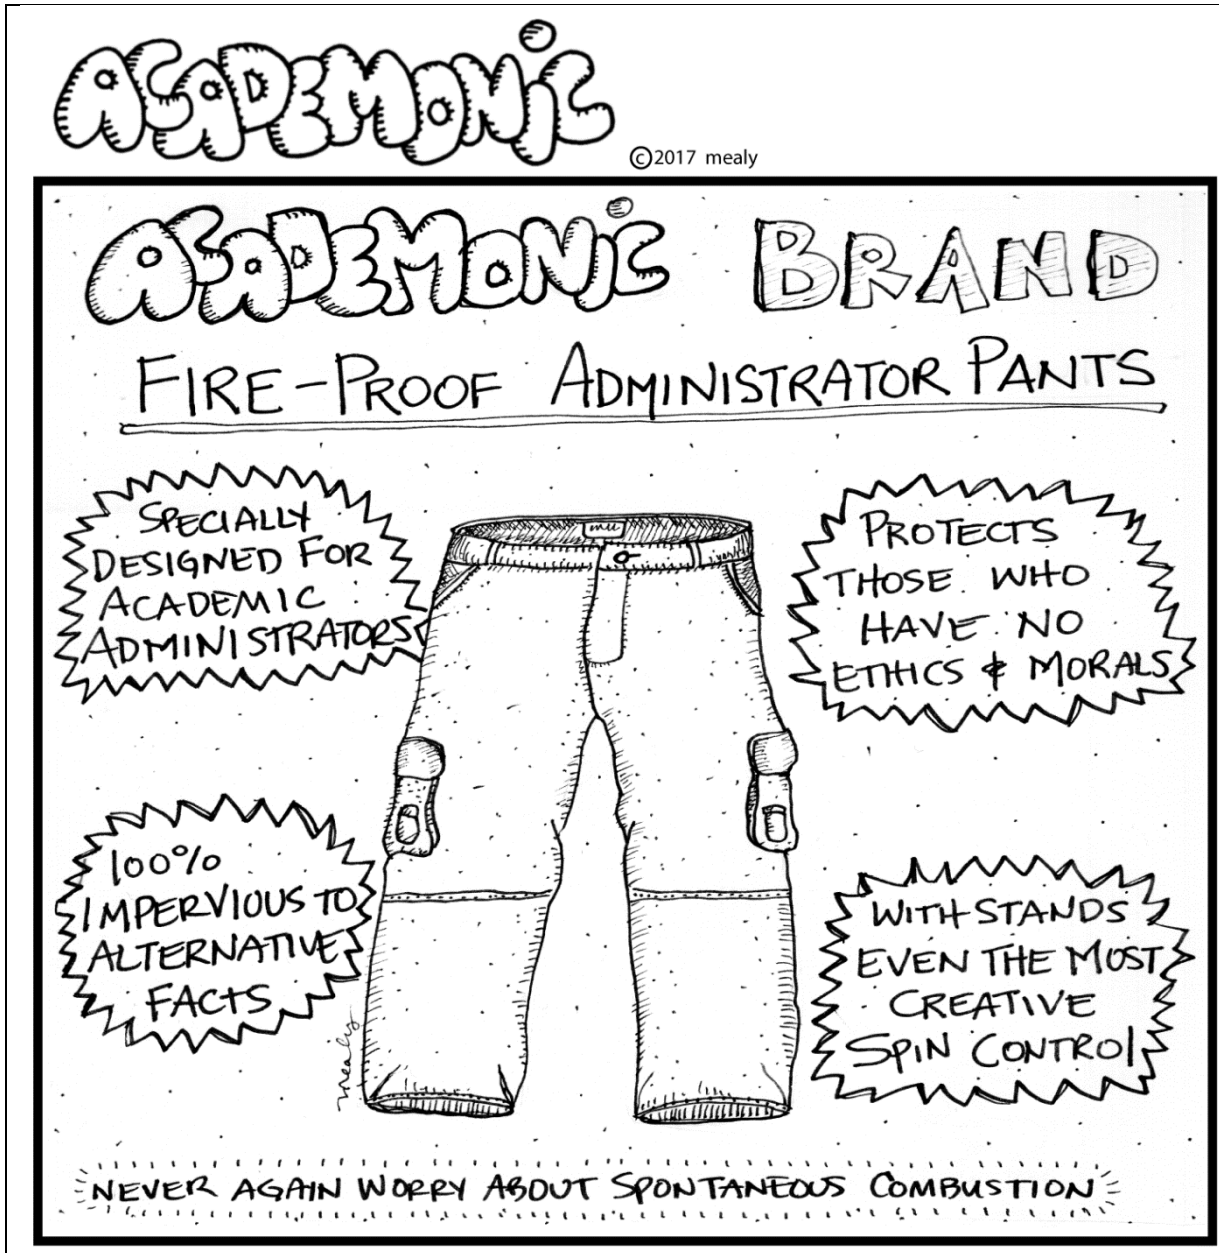 ACADEMONiC
©2017 mealy
ACADEMONiC BRAND
FIRE-PROOF ADMINISTRATOR PANTS
SPECIALLY
DESIGNED FOR
ACADEMIC
ADMINISTRATORS
PROTECTS
THOSE WHO
HAVE NO
ETHICS & MORALS
100%
IMPERVIOUS TO
ALTERNATIVE
FACTS
WITHSTANDS
EVEN THE MOST
CREATIVE
SPIN CONTROL
mealy
NEVER AGAIN WORRY ABOUT SPONTANEOUS COMBUSTION